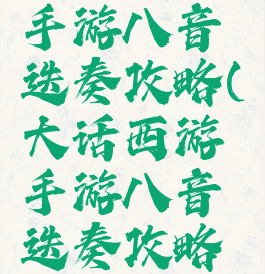 手游八音
迭奏攻略(
大话西游
手游八音
迭奏攻略